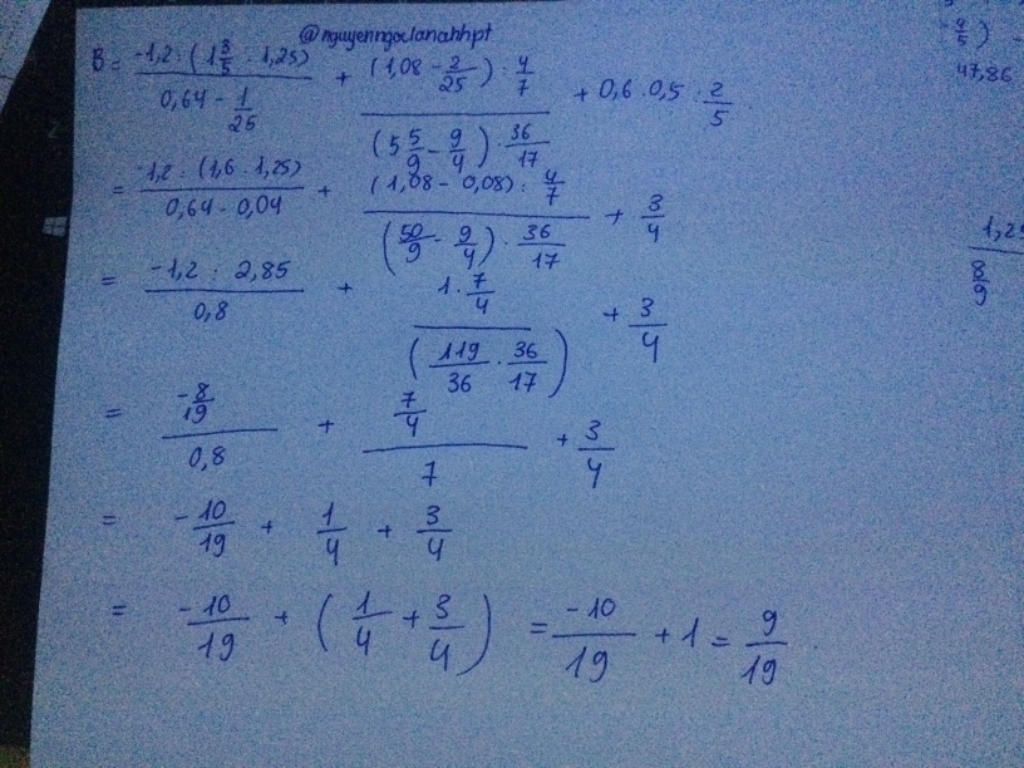 @nguyenngoclanahhpt
B = \frac{-1,2 : (1\frac{3}{5} . 1,25)}{0,64 - \frac{1}{25}} + \frac{(1,08 - \frac{2}{25}) : \frac{4}{7}}{(5\frac{5}{9} - \frac{9}{4}) . \frac{36}{17}} + 0,6 . 0,5 : \frac{2}{5}
= \frac{-1,2 : (1,6 . 1,25)}{0,64 - 0,04} + \frac{(1,08 - 0,08) : \frac{4}{7}}{(\frac{50}{9} - \frac{9}{4}) . \frac{36}{17}} + \frac{3}{4}
= \frac{-1,2 : 2,85}{0,8} + \frac{1 . \frac{7}{4}}{(\frac{119}{36} . \frac{36}{17})} + \frac{3}{4}
= \frac{-\frac{8}{19}}{0,8} + \frac{\frac{7}{4}}{7} + \frac{3}{4}
= -\frac{10}{19} + \frac{1}{4} + \frac{3}{4}
= \frac{-10}{19} + (\frac{1}{4} + \frac{3}{4}) = \frac{-10}{19} + 1 = \frac{9}{19}
47,86
\frac{8}{9}